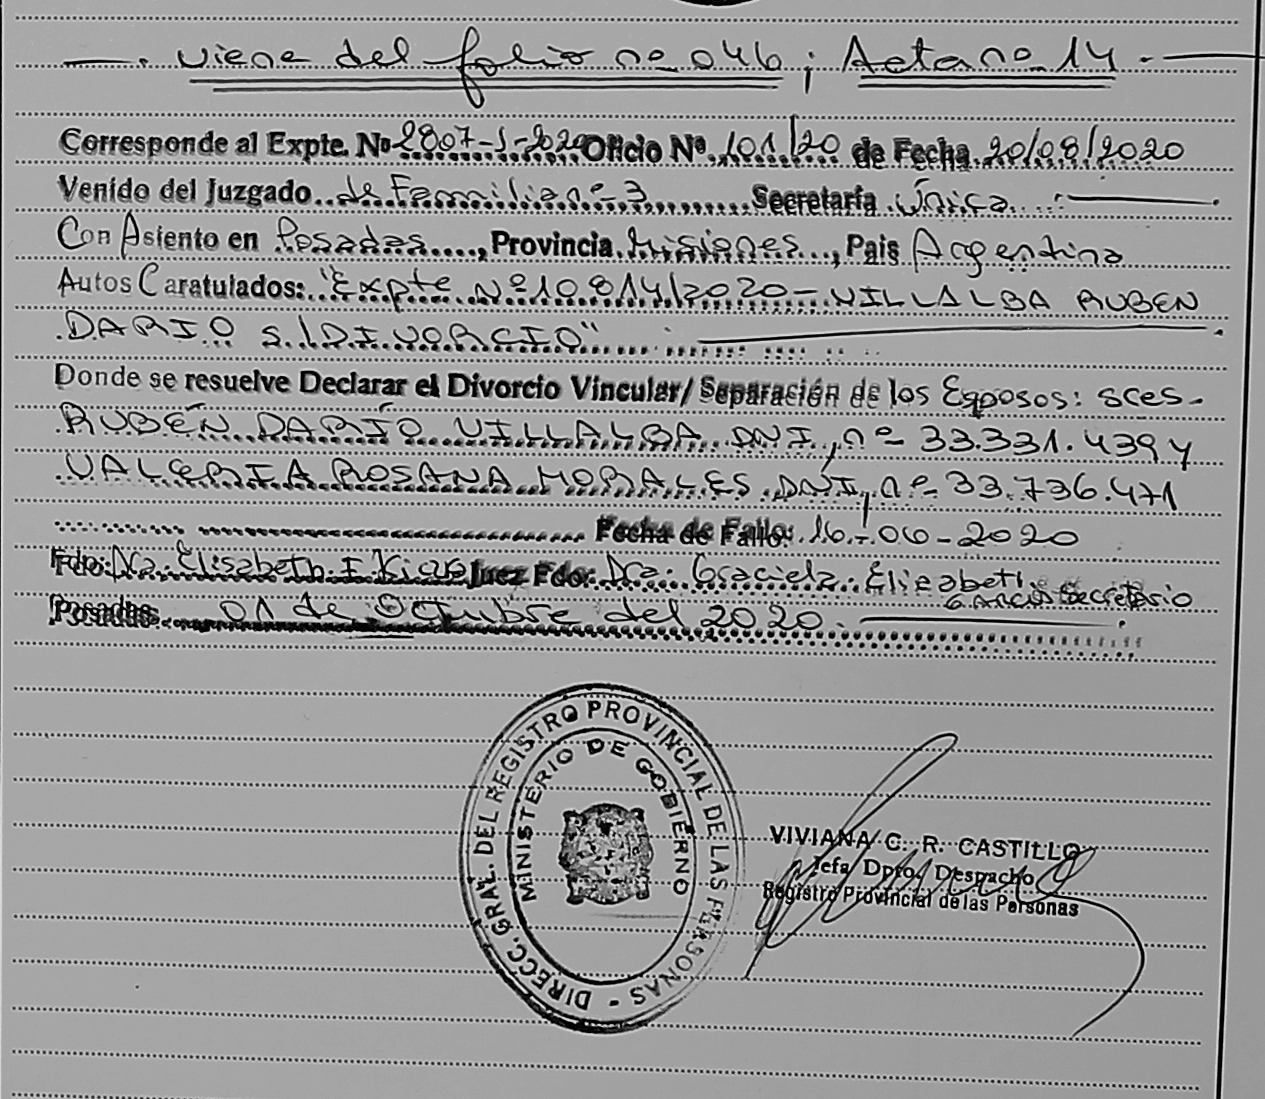 —. viene del folio nº 046; Acta nº 14.—
Corresponde al Expte. Nº 2807-J-2020 Oficio Nº 101/20 de Fecha 20/08/2020
Venido del Juzgado de Familia nº 3 Secretaría Única.—
Con Asiento en Posadas, Provincia Misiones, Pais Argentina
Autos Caratulados: "Expte Nº 10814/2020 - VILLALBA RUBEN
DARIO S/DIVORCIO" —.
Donde se resuelve Declarar el Divorcio Vincular/ Separación de los Esposos: sces-
RUBÉN DARÍO VILLALBA DNI, nº 33.331.439 y
VALERIA ROSANA MORALES DNI, nº 33.736.471
Fecha de Fallo: 16-06-2020
Fdo: Dra. Elisabeth Juez Fdo: Dra. Graciela Elizabeth
Garcia Secretario
Posadas. 01 de Octubre del 2020.—
DIRECC. GRAL. DEL REGISTRO PROVINCIAL DE LAS PERSONAS -
MINISTERIO DE GOBIERNO
VIVIANA C. R. CASTILLO
Jefa Dpto. Despacho
Registro Provincial de las Personas